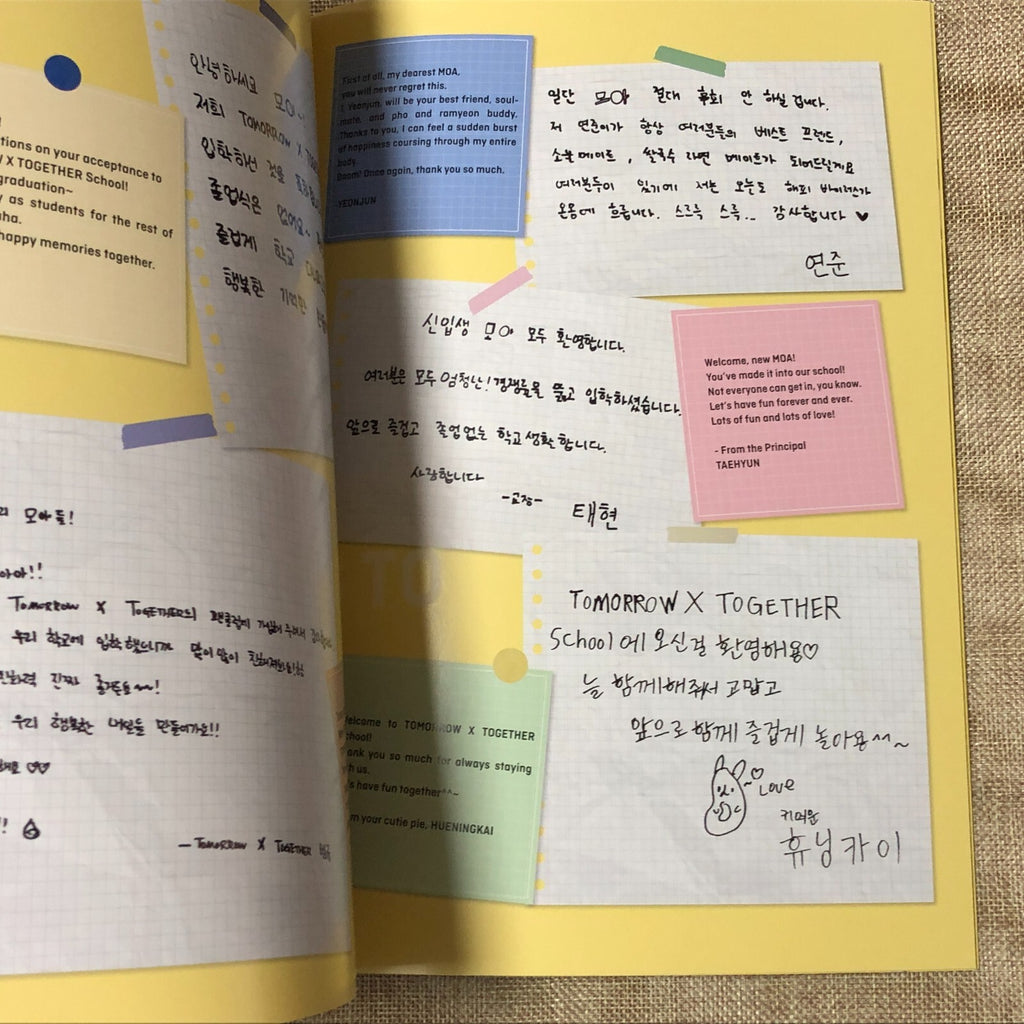 !
tions on your acceptance to
W X TOGETHER School!
graduation~
y as students for the rest of
aha.
happy memories together.
안녕하세요 모아
저희 TOMORROW X
입학하신 것을
졸업식은 없어요~
즐겁게 학교
행복한 기억만
리 모아들!
아아!!
TOMORROW X TOGETHER의 팬클럽에 가입해 주셔서
우리 학교에 입학했으니까 많이 많이
친화력 진짜 좋거든요~~!
우리 행복한 내일들 만들어가요!!
해요 ♡♡
!!
— TOMORROW X TOGETHER
First of all, my dearest MOA,
you will never regret this.
I, Yeonjun, will be your best friend, soul-
mate, and pho and ramyeon buddy.
Thanks to you, I can feel a sudden burst
of happiness coursing through my entire
body.
Boom! Once again, thank you so much.
-YEONJUN
일단 모아 절대 후회 안 하실 겁니다.
저 연준이가 항상 여러분들의 베스트 프렌드,
소울 메이트, 쌀국수 라면 메이트가 되어드릴게요
여러분들이 있기에 저는 오늘도 해피 바이러스가
온몸에 흐릅니다. 스르륵 스륵... 감사합니다 ♥
연준
신입생 모아 모두 환영합니다.
여러분은 모두 엄청난! 경쟁률을 뚫고 입학하셨습니다.
앞으로 즐겁고 졸업없는 학교생활 합니다.
사랑합니다
-교장-
태현
Welcome, new MOA!
You've made it into our school!
Not everyone can get in, you know.
Let's have fun forever and ever.
Lots of fun and lots of love!
- From the Principal
TAEHYUN
TO
elcome to TOMORROW X TOGETHER
chool!
ank you so much for always staying
h us.
's have fun together^^~
m your cutie pie, HUENINGKAI
TOMORROW X TOGETHER
School에 오신걸 환영해용♡
늘 함께해줘서 고맙고
앞으로 함께 즐겁게 놀아용^^~
♡ Love
귀여운
휴닝카이